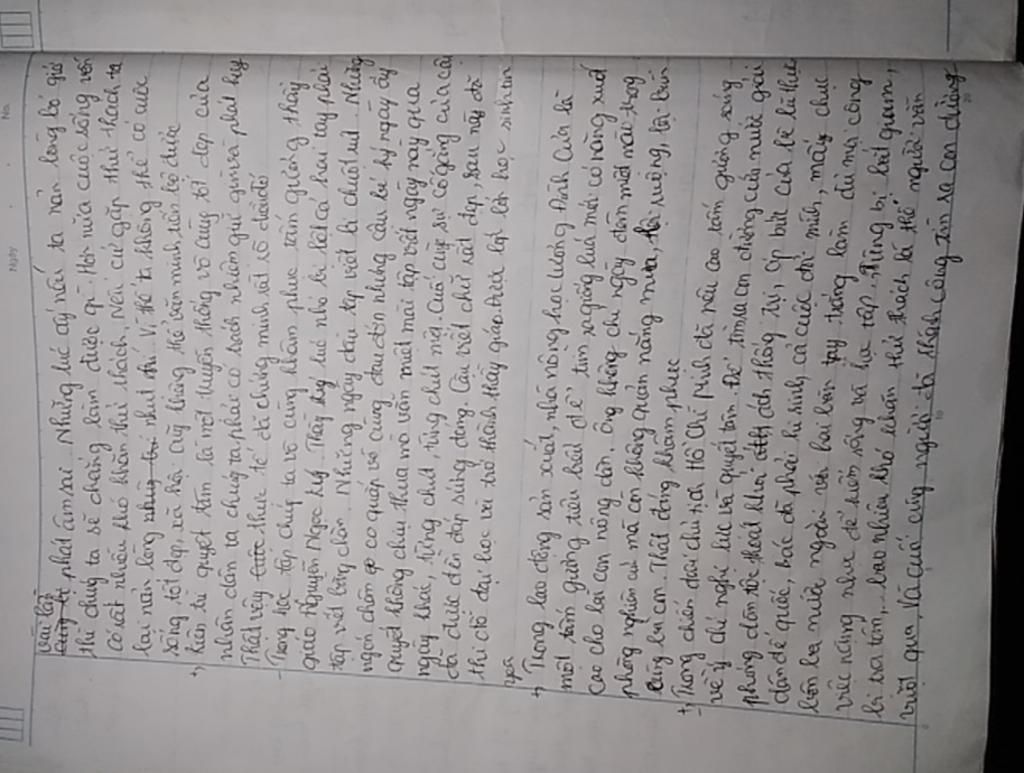 No.
Ngày
vấp lấp
phát âm sai. Những lúc ấy nếu ta nản lòng bỏ giở
thì chúng ta sẽ chẳng làm được gì. Hơn nữa cuộc sống vốn
có rất nhiều khó khăn thử thách. Nếu cứ gặp thử thách ta
lại nản lòng nhụt chí thì Vì thế ta không thể có cuộc
sống tốt đẹp, xã hội cũng không thể văn minh tiến bộ được
+, kiên trì quyết tâm là một truyền thống vô cùng tốt đẹp của
nhân dân ta chúng ta phải có trách nhiệm giữ gìn và phát huy
Thật vậy thực tế đã chứng minh rất rõ điều đó
- Trong học tập chúng ta vô cùng khâm phục tấm gương thầy
giáo Nguyễn Ngọc Ký. Thầy Ký lúc nhỏ bị liệt cả hai tay phải
tập viết bằng chân. Những ngày đầu tập viết bị chuột rút. Những
ngón chân co quắp vô cùng đau đớn nhưng cậu bé Ký ngày ấy
quyết không chịu thua mà vẫn miệt mài tập viết ngày này qua
ngày khác, từng chút, từng chút một. Cuối cùng sự cố gắng của cậu
đã được đền đáp xứng đáng. Cậu viết chữ rất đẹp, sau này đỗ
thi đỗ đại học và trở thành thầy giáo. Được lớp lớp học sinh tôn
+, Trong lao động sản xuất, nhà nông học Lương Định Của là
một tấm gương tiêu biểu để tìm ra giống lúa mới có năng xuất
cao cho bà con nông dân. Ông không chỉ ngày đêm miệt mài trong
phòng nghiên cứu mà còn không quản nắng mưa, lội ruộng, lội bùn
cùng bà con. Thật đáng khâm phục
+, Trong chiến đấu chủ tịch Hồ Chí Minh đã nêu cao tấm gương sáng
về ý chí nghị lực và quyết tâm. Để tìm ra con đường cứu nước giải
phóng dân tộc thoát khỏi ách thống trị, áp bức của lũ thực
dân đế quốc, bác đã phải hi sinh cả cuộc đời mình, mấy chục
bôn ba nước ngoài với hai bàn tay trắng làm đủ mọi công
việc nặng nhọc để kiếm sống và học tập. Từng bị bắt giam,
bị tra tấn,... bao nhiêu khó khăn thử thách là thế người vẫn
vượt qua. Và cuối cùng người đã thành công tìm ra con đường